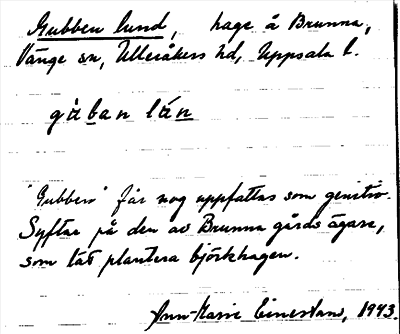 Gubben lund, hage å Brunna,
Vänge sn, Ulleråkers hd, Uppsala l.
gùban lún
"Gubben" får nog uppfattas som genitiv.
Syftar på den av Brunna gårds ägare,
som lät plantera björkhagen.
Ann-Marie 1943.